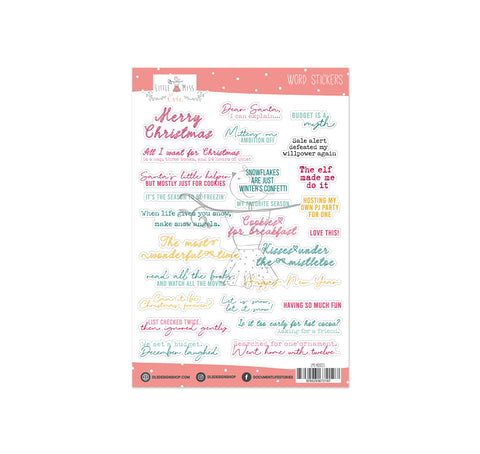 LITTLE MISS
WORD STICKERS
Merry
Christmas
Dear Santa,
I can explain...
BUDGET IS A
myth
Mittens on
AMBITION OFF
Sale alert
defeated my
willpower again
All I want for Christmas
is a nap, three books, and 24 hours of quiet
Santa's little helper
BUT MOSTLY JUST FOR COOKIES
SNOWFLAKES
ARE JUST
WINTER'S CONFETTI
The elf
made me
do it
IT'S THE SEASON TO BEFREEZIN'
MY FAVORITE SEASON
HOSTING MY
OWN PJ PARTY
FOR ONE
When life gives you snow,
make snow angels.
Cookies
for breakfast
LOVE THIS!
The most
wonderful time
Kisses under
the mistletoe
read all the books
AND WATCH ALL THE MOVIES
Happy New Year
Christmas
Let it snow,
let it
HAVING SO MUCH FUN
LIST CHECKED TWICE
then ignored gently
Is it too early for hot cocoa?
Asking for a friend.
We set a budget.
December laughed
Searched for one ornament.
Went home with twelve
DLSDESIGNSHOP.COM
DLSDESIGNSHOP
DOCUMENTLIFESTORIES